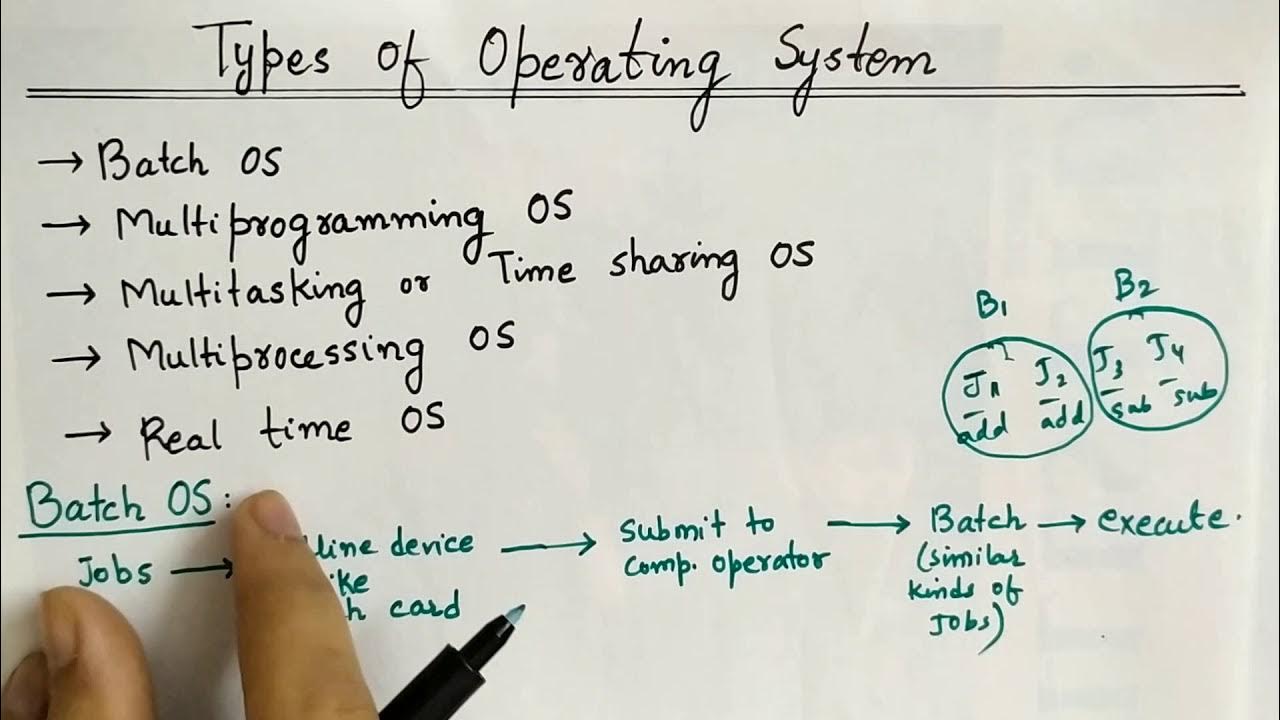 Types of Operating System
→ Batch OS
→ Multiprogramming OS
→ Multitasking or Time sharing OS
→ Multiprocessing OS
→ Real time OS
B1 B2
J1 J2 J3 J4
add add sub sub
Batch OS:
Jobs → line device → submit to comp. operator → Batch → execute.
card
(similar
kinds of
Jobs)